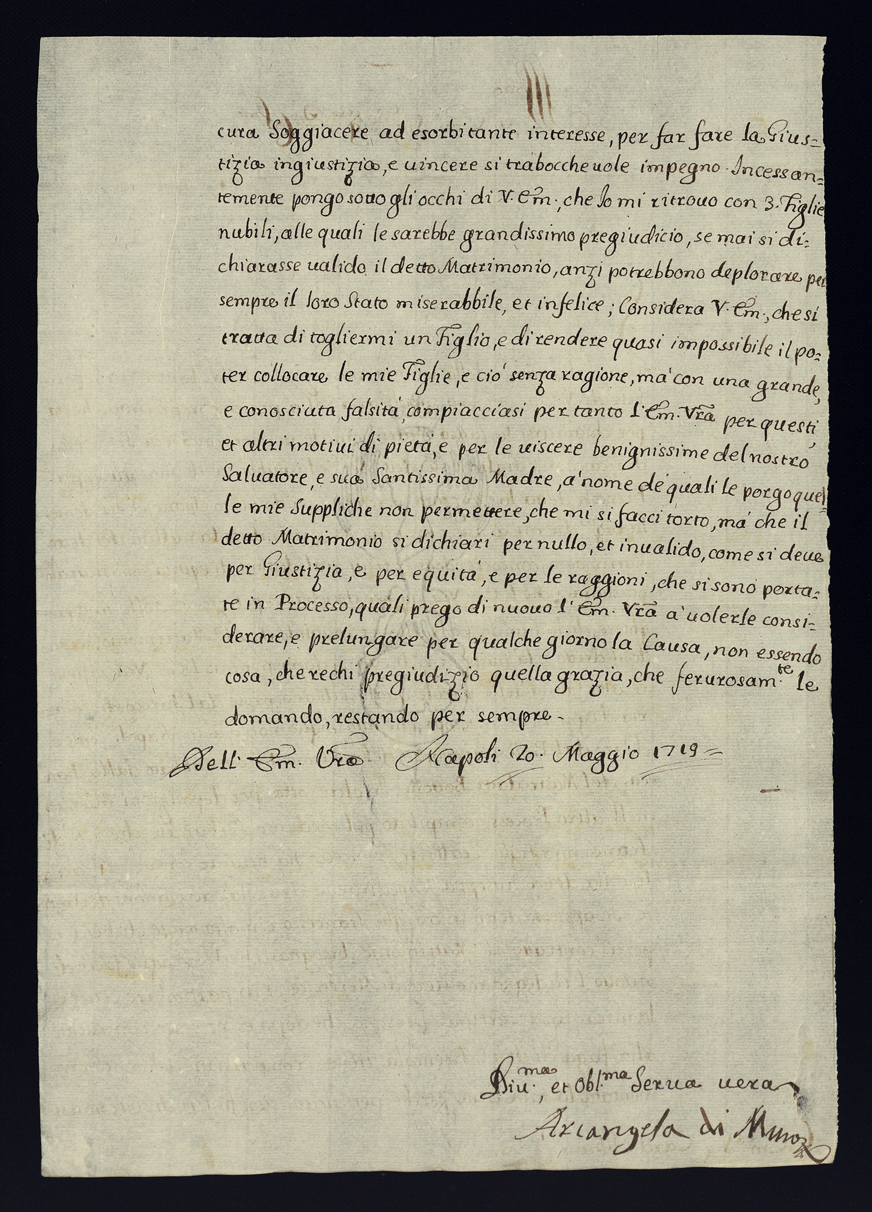 cura Soggiacere ad esorbitante interesse, per far fare la Gius=
tizia ingiustizia, e uincere si traboccheuole impegno. Incessan=
temente pongo sotto gli occhi di V. Em., che Io mi ritrouo con 3. Figlie
nubili, alle quali le sarebbe grandissimo pregiudicio, se mai si di=
chiarasse ualido il detto Matrimonio, anzi potrebbono deplorare per
sempre il loro Stato miserabbile, et infelice; Considera V. Em., che si
tratta di togliermi un Figlio, e di rendere quasi impossibile il po=
ter collocare le mie Figlie, e ciò senza ragione, mà con una grande,
e conosciuta falsità, compiacciasi per tanto l'Em. Vra per questi,
et altri motiui di pietà, e per le uiscere benignissime del nostro
Saluatore, e suà Santissima Madre, à nome de quali le porgo queste
le mie Suppliche non permettere, che mi si facci torto, mà che il
detto Matrimonio si dichiari per nullo, et inualido, come si deue
per Giustizia, e per equità, e per le raggioni, che si sono porta=
te in Processo, quali prego di nuouo l'Em. Vra à uolerle consi=
derare, e prelungare per qualche giorno la Causa, non essendo
cosa, che rechi pregiudizio quella grazia, che feruorosam.te le
domando, restando per sempre.
Dell' Em. Vra Napoli 20. Maggio 1719=
Diu.ma, et Obl.ma Serua uera
Arcangela di Munoz